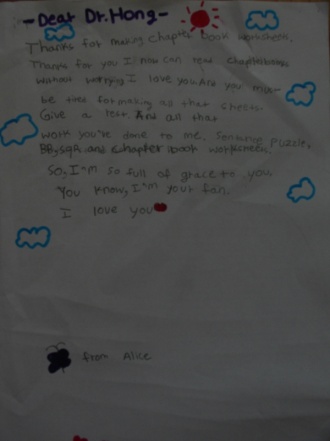 - Dear Dr. Hong -
Thanks for making chapter book worksheets.
Thanks for you I now can read chapterbooks
without worrying I love you. Are you
be tired for making all that sheets.
Give a rest. And all that
work you've done to me, Sentence puzzle,
BB, SQR and chapter book worksheet.
So, I'm so full of grace to you.
You know, I'm your fan.
I love you
from Alice